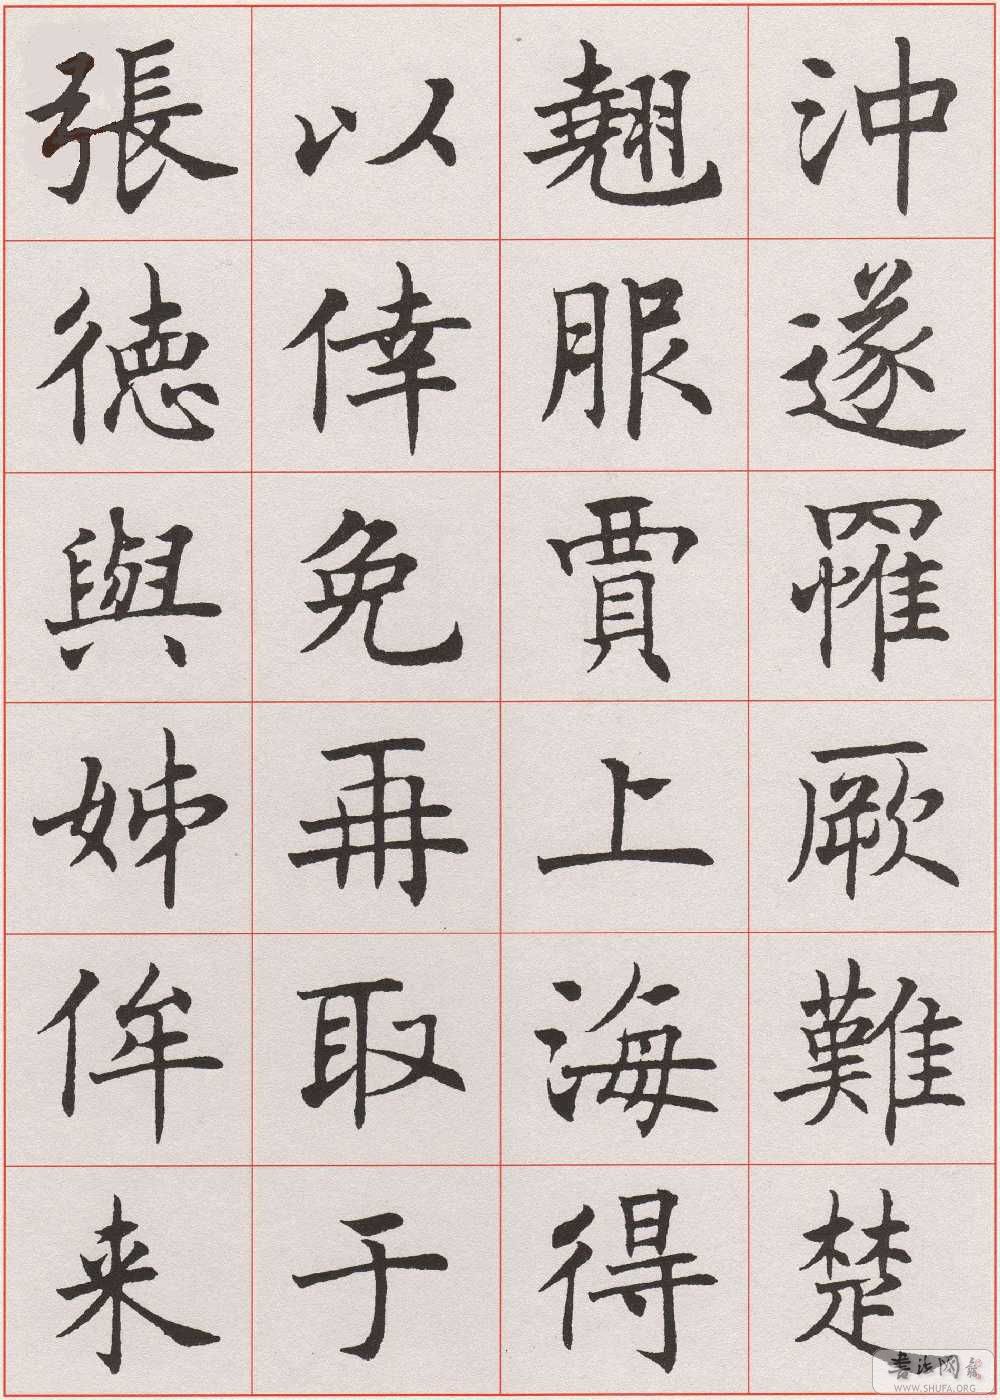 沖遂罹厥難楚
翹服賈上海得
以倖免再取于
張德與姊侔来
書法网
WWW.SHUFA.ORG